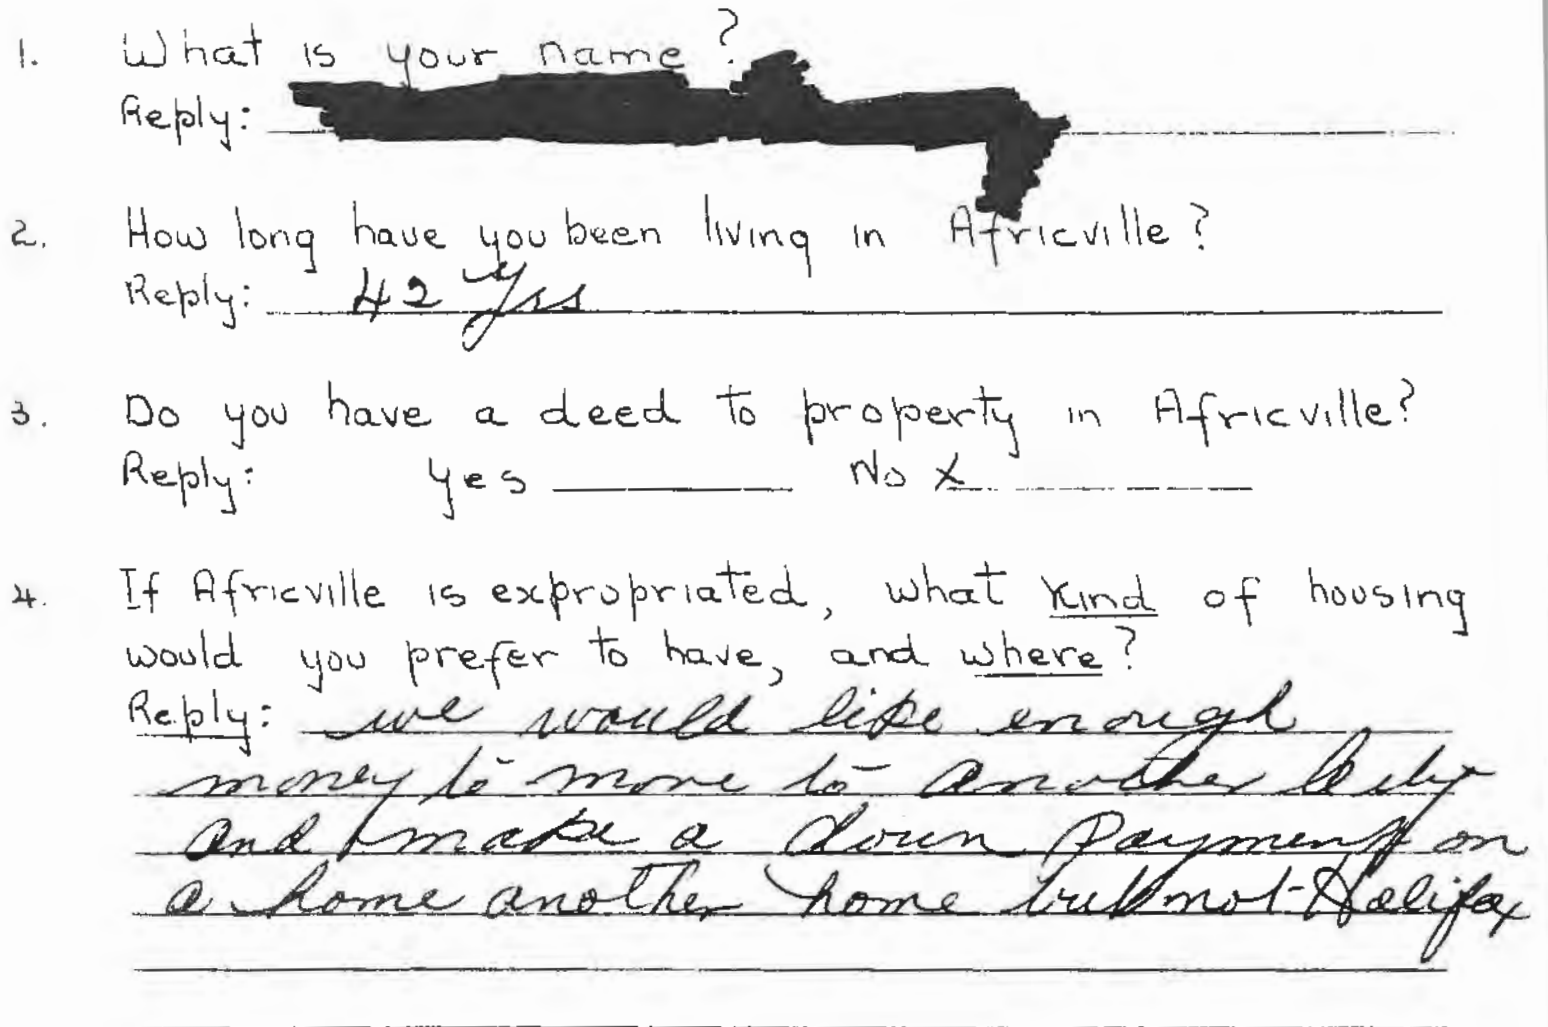 1. What is your name?
Reply:
2. How long have you been living in Africville?
Reply: 42 Yrs
3. Do you have a deed to property in Africville?
Reply: Yes No X
4. If Africville is expropriated, what kind of housing
would you prefer to have, and where?
Reply: we would like enough
money to move to another City
and make a down payment on
a home another home but not Halifax